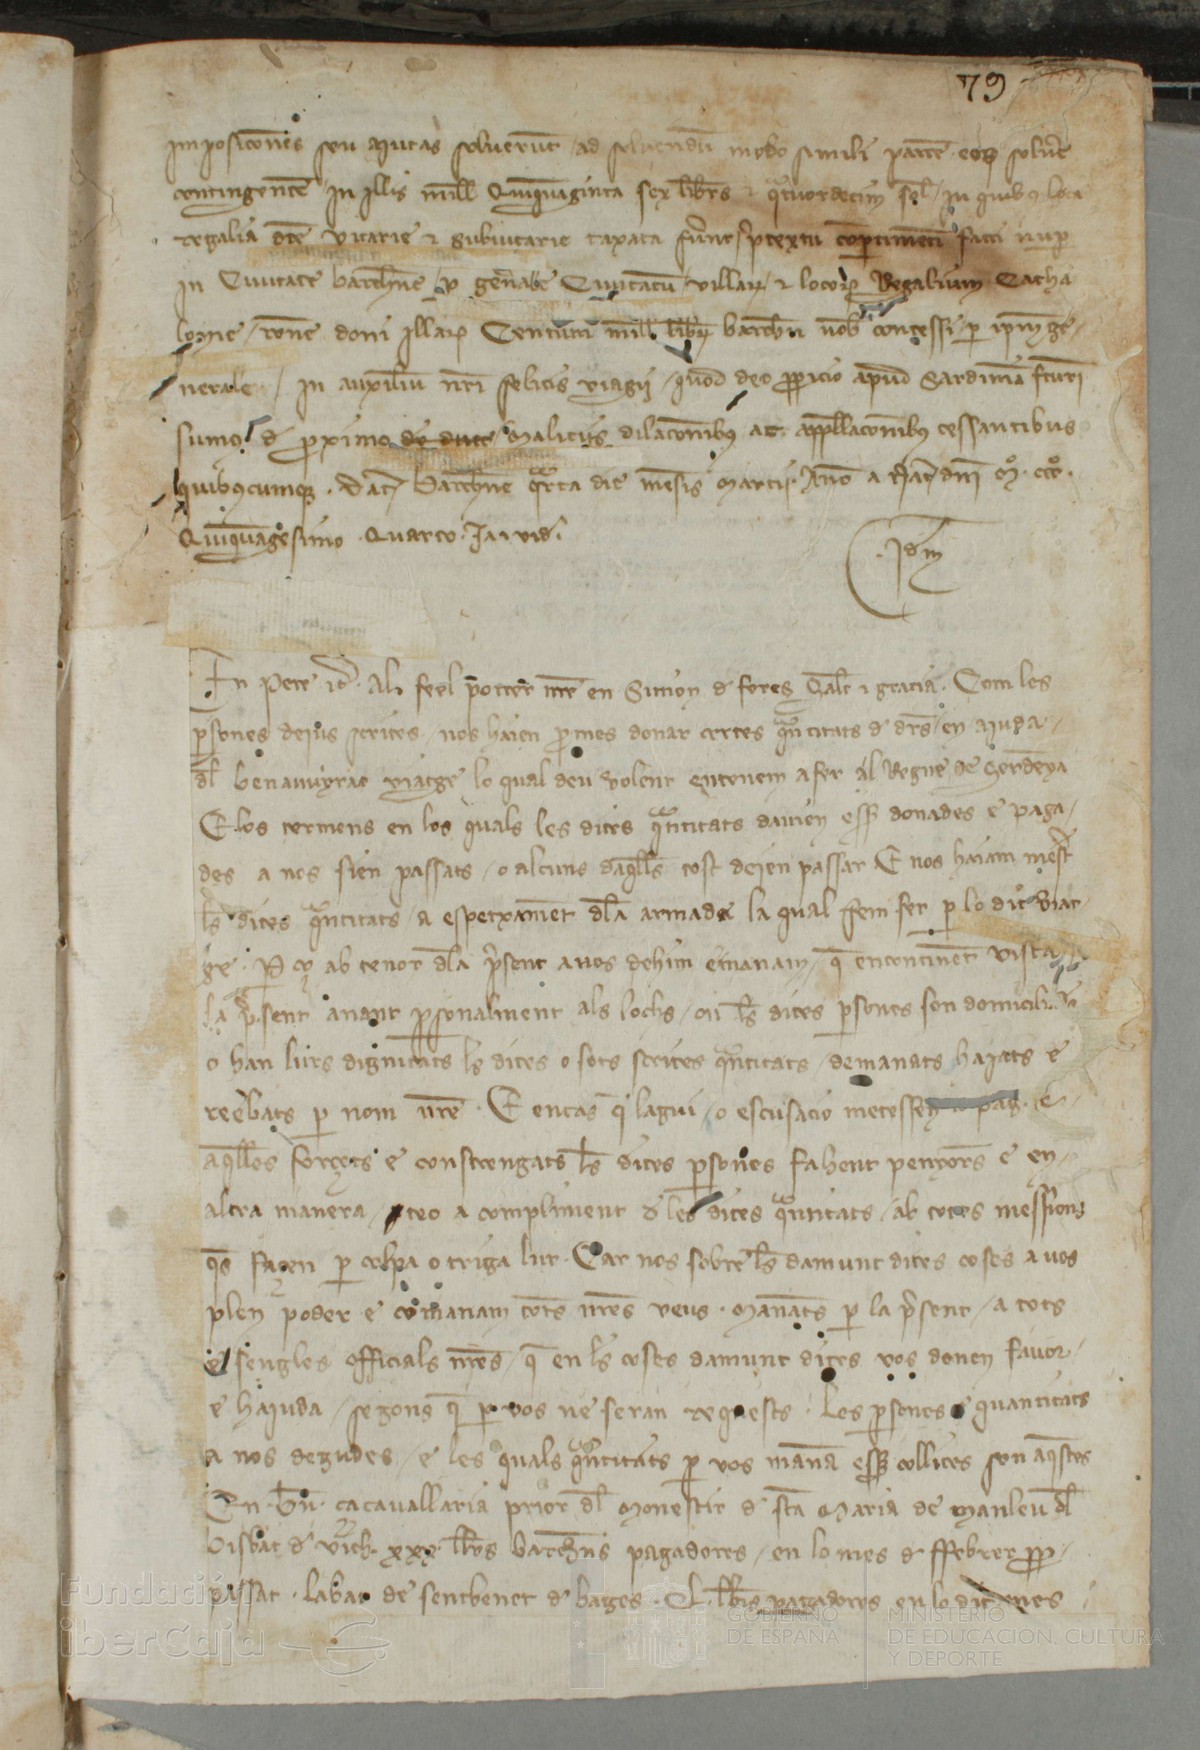 79
imposicões seu aiutas solverūt ad solvendū modo simili partē eos solvē
contingentē in illis mill Quinquaginta sex libris et qtuordecim sol in quibȝ loca
regalia dcē vicarie et subvicarie taxata fuērnt p̄textu cop̄timenti facti nup
in Civitate barchn̄e p gen̄ale Civitatū villaȝ et locoȝ Regalium Catha
lonie rōne doni illaȝ Centum mill libȝ barchn̄ nob concessi p ipm̄ ge
nerale in auxiliū nr̄i felicis viagij quod deo p̄picio apud Sardiniā fcturi
sumȝ d p̄ximo maliciis dilaconībȝ ac appellaconībȝ cessantibus
quibȝcumqȝ. dat barchn̄e qrta die mēsis marcij Anno a Nat dn̄i mº cccº
Quinquagesimo Quarto. Ja vid.
Idm
En Pere etc̄. Al feel porter nr̄e en Simon d fores Salt et gracia. Com les
psones deius scrites nos haien p̄mes donar certes qntitats d drs en aiuda
dl benauuyrat viatge lo qual deu volent entenem a fer al Regne de Serdenya
E los termens en los quals les dites qntitats davien ess̄ donades e paga
des a nos sien passats o alcuns daqlls tost deien passar E nos haiam mest̄
ls dites qntitats a espetxamēt dla armada la qual fem fer p lo dit viat
ge. P ço ab tenor dla p̄sent a vos dehim e manam q̄ encontinēt vista
la p̄sent anant psonalment als lochs on ls dites psones son domicili
o han lurs dignitats ls dites o sots scrites qntitats demanats haiats e
reebats p nom nr̄e. E en cas q̄ lagui o escusacio metessen pag. e
aqlles forçets e constrengats ls dites psones fahent penyors e en
altra manera tro a compliment d les dites qntitats ab totes messions
q̄s facen p colpa o triga lur. Car nos sobre ls damunt dites coses a vos
plen poder e comanam tots nr̄es veus. Manāts p la p̄sent a tots
e sengles officials nr̄es q̄ en ls coses damunt dites vos donen favor
e haiuda segons q̄ p vos ne seran request̄s. Les psones e quantitats
a nos degudes e les quals qntitats p vos manā ess̄ collites son aqstes
En Bn̄ ça cavallaria prior dl monestir d sta Maria de manleu dl
Bisbat d vich xxx llrs barchn̄s pagadores en lo mes d ffebrer pp
passat. Labat de sentbenet d bages. L. llrs pagadores en lo dit mes
Fundación
iberCaja
GOBIERNO
DE ESPAÑA
MINISTERIO
DE EDUCACIÓN, CULTURA
Y DEPORTE